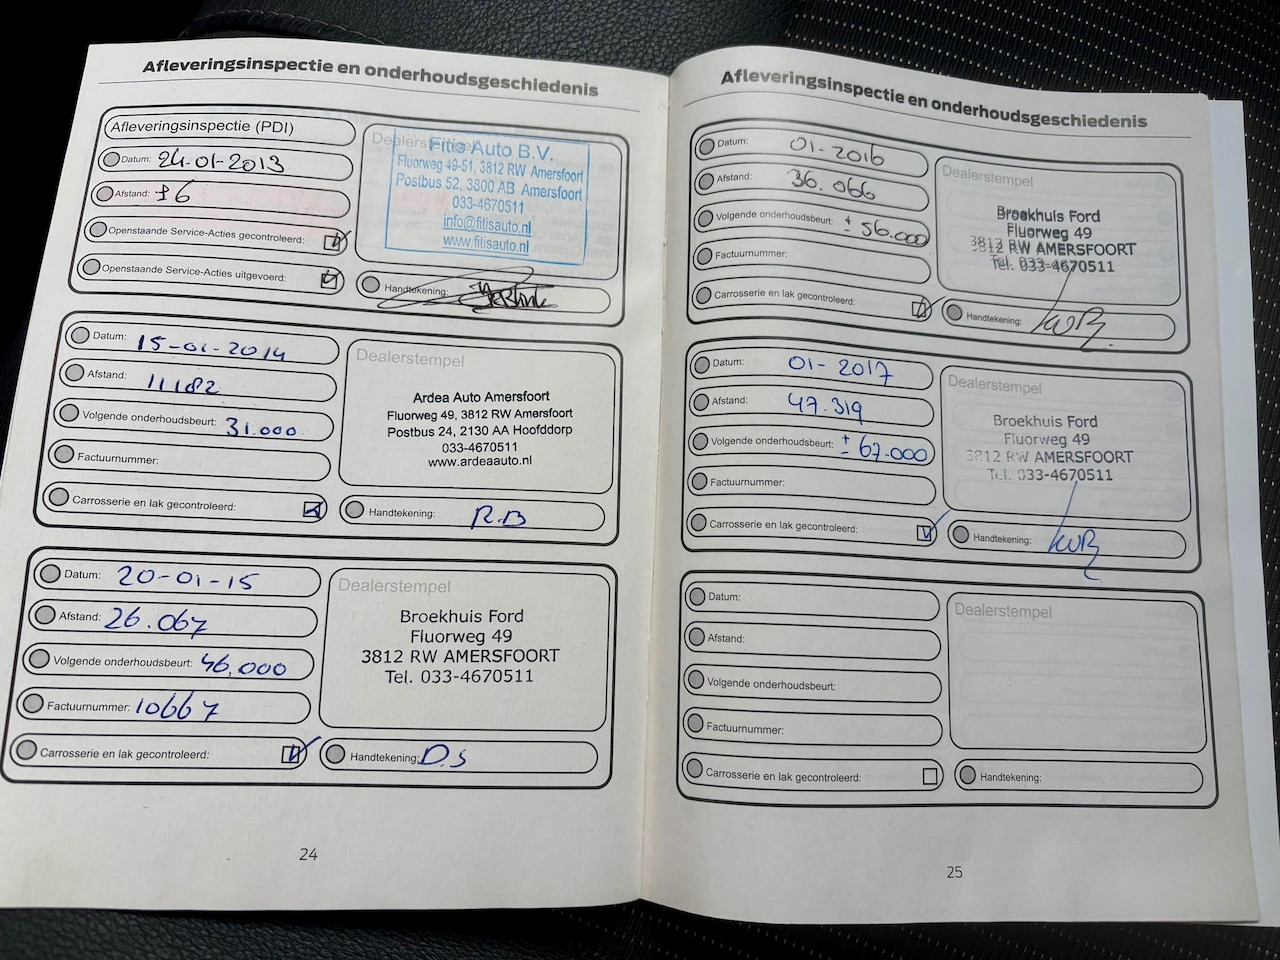 Afleveringsinspectie en onderhoudsgeschiedenis
Afleveringsinspectie (PDI)
Datum: 24-01-2013
Afstand: ±6
Openstaande Service-Acties gecontroleerd:
Openstaande Service-Acties uitgevoerd:
Dealerstempel
Fitis Auto B.V.
Fluorweg 49-51, 3812 RW Amersfoort
Postbus 52, 3800 AB Amersfoort
033-4670511
info@fitisauto.nl
www.fitisauto.nl
Handtekening:
Datum: 15-01-2014
Afstand: 11182
Volgende onderhoudsbeurt: 31.000
Factuurnummer:
Carrosserie en lak gecontroleerd:
Dealerstempel
Ardea Auto Amersfoort
Fluorweg 49, 3812 RW Amersfoort
Postbus 24, 2130 AA Hoofddorp
033-4670511
www.ardeaauto.nl
Handtekening: R.B
Datum: 20-01-15
Afstand: 26.067
Volgende onderhoudsbeurt: 46,000
Factuurnummer: 10667
Carrosserie en lak gecontroleerd:
Dealerstempel
Broekhuis Ford
Fluorweg 49
3812 RW AMERSFOORT
Tel. 033-4670511
Handtekening: D.S
24
Afleveringsinspectie en onderhoudsgeschiedenis
Datum: 01-2016
Afstand: 36.066
Volgende onderhoudsbeurt: ± 56.000
Factuurnummer:
Carrosserie en lak gecontroleerd:
Dealerstempel
Broekhuis Ford
Fluorweg 49
3812 RW AMERSFOORT
Tel. 033-4670511
Handtekening:
Datum: 01-2017
Afstand: 47.319
Volgende onderhoudsbeurt: ± 67.000
Factuurnummer:
Carrosserie en lak gecontroleerd:
Dealerstempel
Broekhuis Ford
Fluorweg 49
3812 RW AMERSFOORT
Tel. 033-4670511
Handtekening:
Datum:
Afstand:
Volgende onderhoudsbeurt:
Factuurnummer:
Carrosserie en lak gecontroleerd:
Dealerstempel
Handtekening:
25